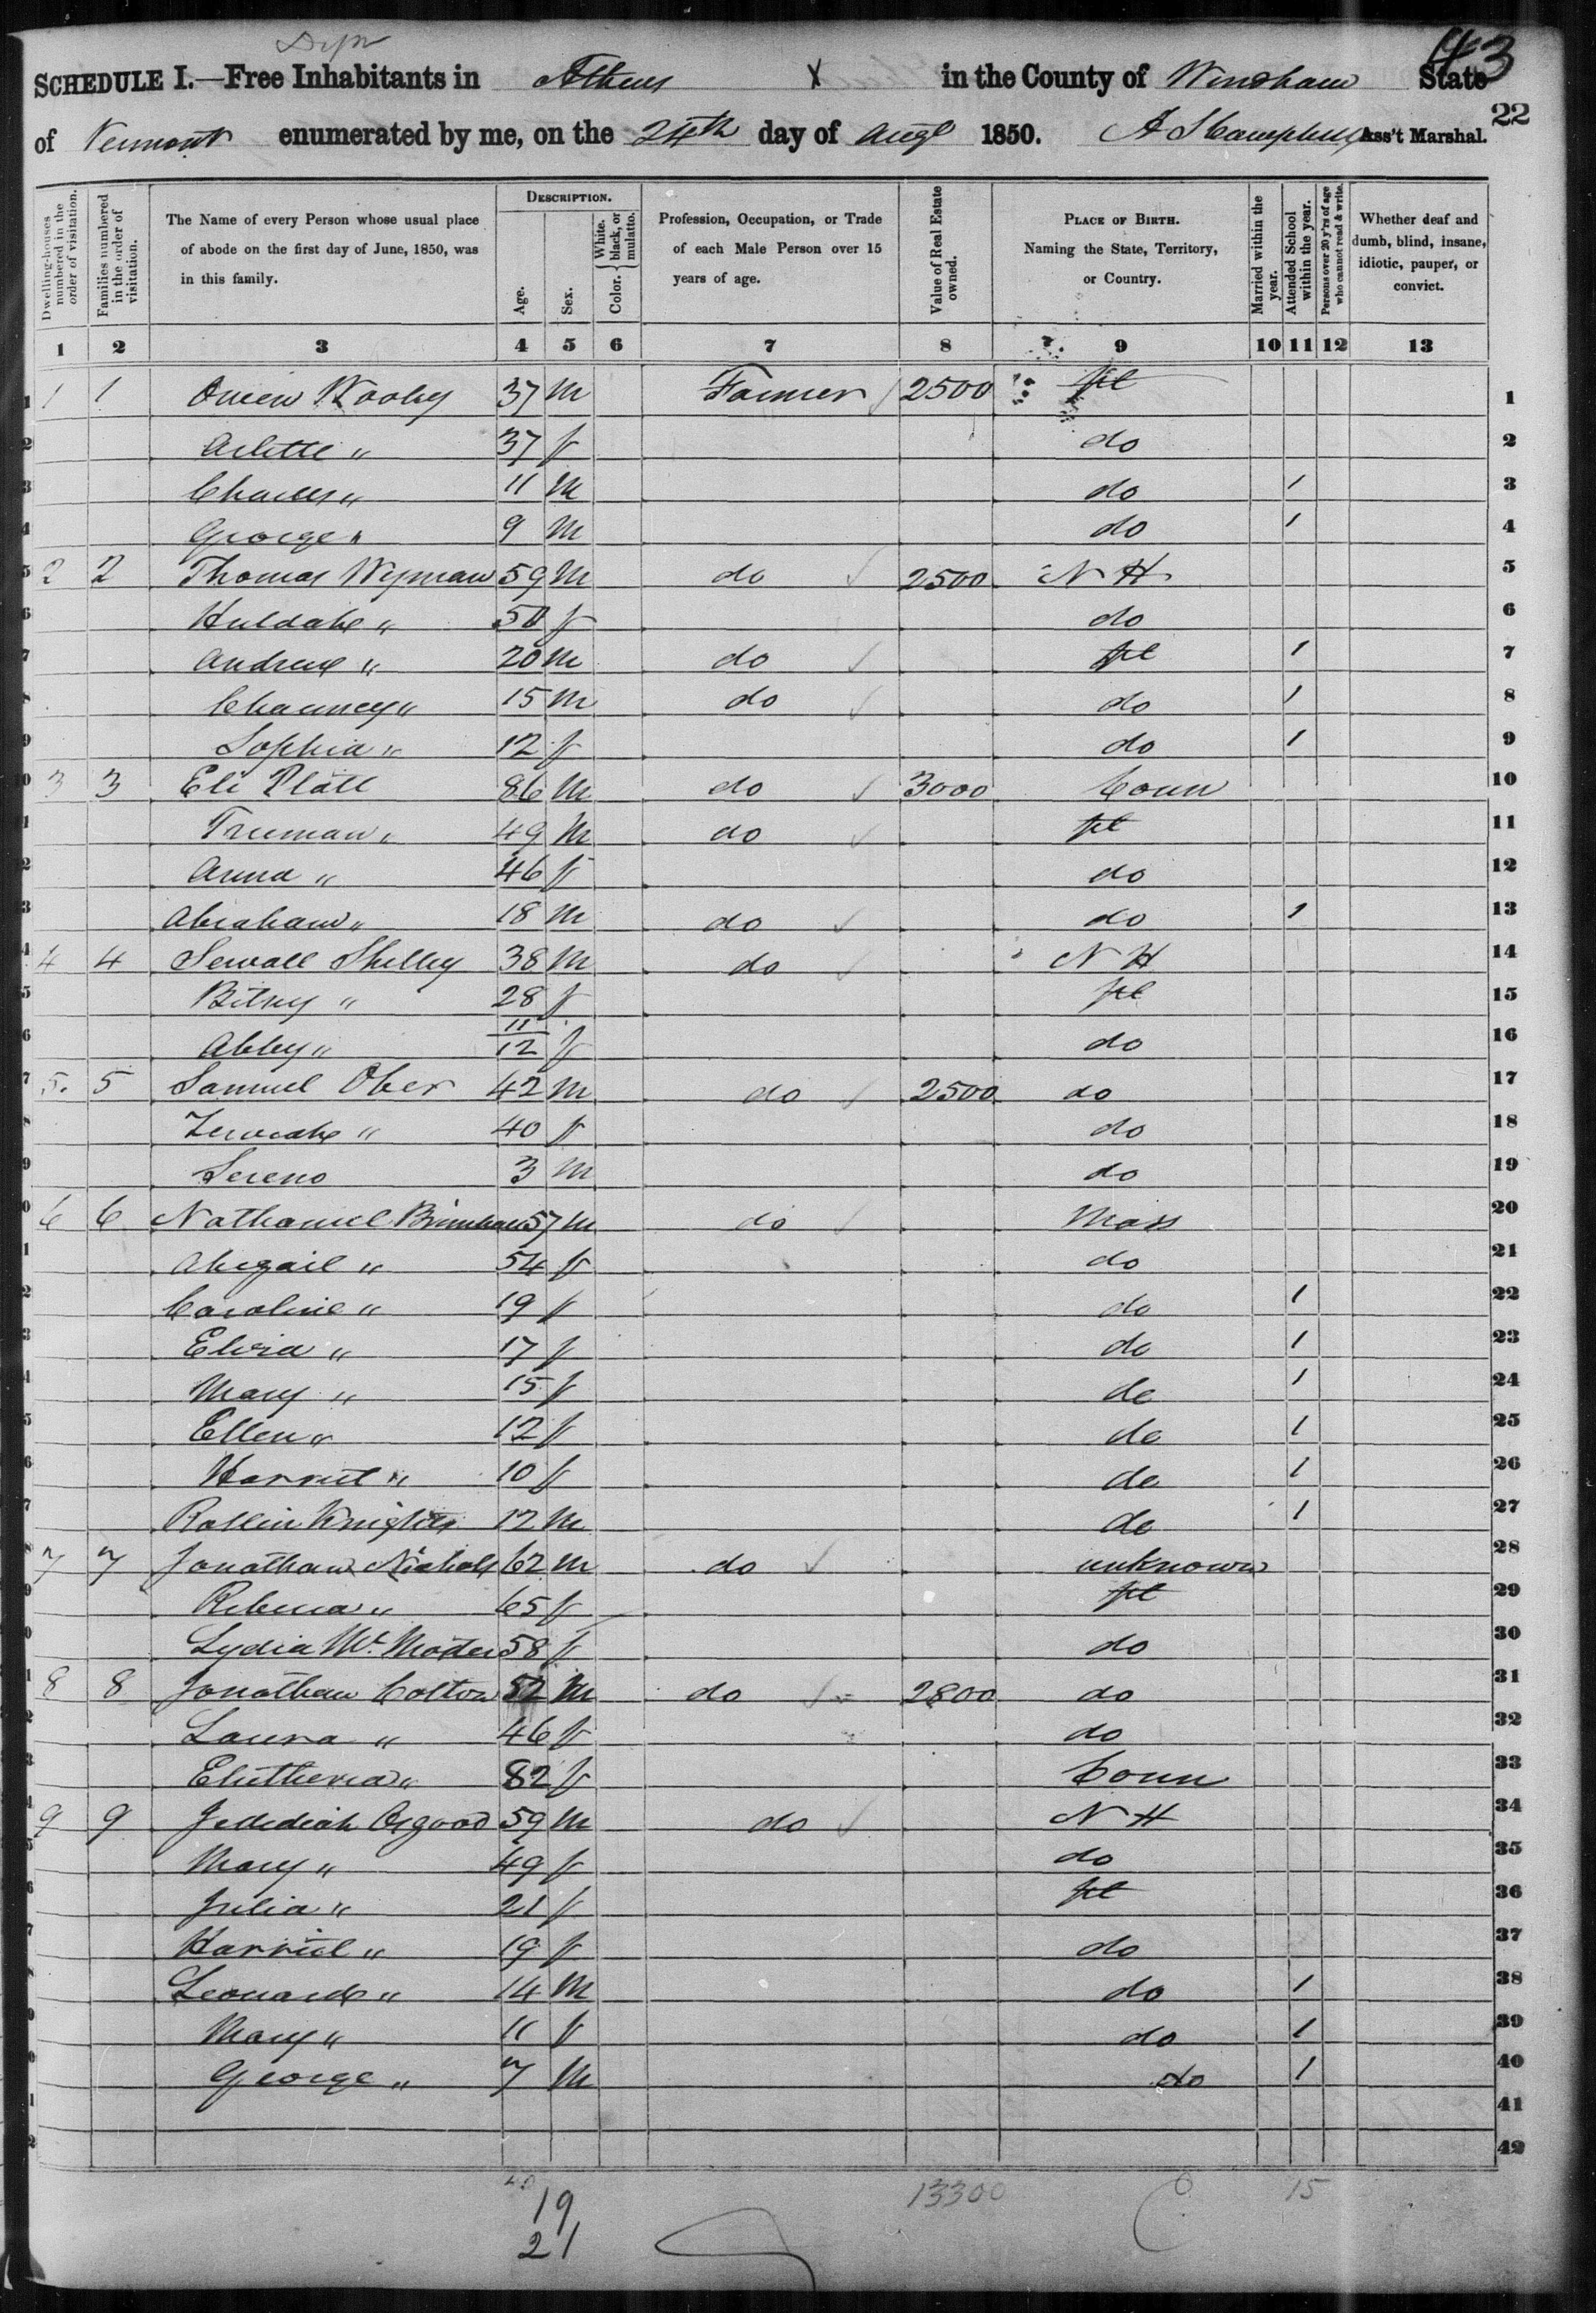 43
SCHEDULE I.—Free Inhabitants in Athens X in the County of Windham State
22
of Vermont enumerated by me, on the 24th day of Augt 1850. Ass't Marshal.
Dwelling-houses numbered in the order of visitation.
Families numbered in the order of visitation.
The Name of every Person whose usual place of abode on the first day of June, 1850, was in this family.
DESCRIPTION.
Age.
Sex.
Color. { White, black, or mulatto.
Profession, Occupation, or Trade of each Male Person over 15 years of age.
Value of Real Estate owned.
PLACE OF BIRTH. Naming the State, Territory, or Country.
Married within the year.
Attended School within the year.
Persons over 20 y'rs of age who cannot read & write.
Whether deaf and dumb, blind, insane, idiotic, pauper, or convict.
1 2 3 4 5 6 7 8 9 10 11 12 13
1 1 1 37 m Farmer 2500 Vt 1
2 " 37 f do 2
3 Charles " 11 m do 1 3
4 George " 9 m do 1 4
5 2 2 Thomas Wyman 59 m do 2500 N H 5
6 Huldah " 50 f do 6
7 Andrew " 20 m do Vt 1 7
8 Chauncey " 15 m do do 1 8
9 Sophia " 12 f do 1 9
0 3 3 Eli Platt 86 m do 3000 Conn 10
1 Truman " 49 m do Vt 11
2 Anna " 46 f do 12
3 Abraham " 18 m do do 1 13
4 4 4 Sewall Shelley 38 m do N H 14
5 Betsey " 28 f Vt 15
6 Abby " 11/12 f do 16
7 5 5 Samuel Ober 42 m do 2500 do 17
8 " 40 f do 18
9 Sereno 3 m do 19
0 6 6 Nathaniel 57 m do Mass 20
1 Abigail " 54 f do 21
2 Caroline " 19 f do 1 22
3 " 17 f do 1 23
4 Mary " 15 f do 1 24
5 Ellen " 12 f do 1 25
6 Harriet " 10 f do 1 26
7 Rollin Knights 12 m do 1 27
8 7 7 Jonathan Nichols 62 m do unknown 28
9 " 65 f Vt 29
0 Lydia 58 f do 30
1 8 8 Jonathan Colton 52 m do 2800 do 31
2 Laura " 46 f do 32
3 " 82 f Conn 33
4 9 9 Jedediah Osgood 59 m do N H 34
5 Mary " 49 f do 35
6 Julia " 21 f Vt 36
7 Harriet " 19 f do 37
8 Leonard " 14 m do 1 38
9 Mary " 11 f do 1 39
0 George " 7 m do 1 40
1 41
2 42
40 13300 0 15
19
21